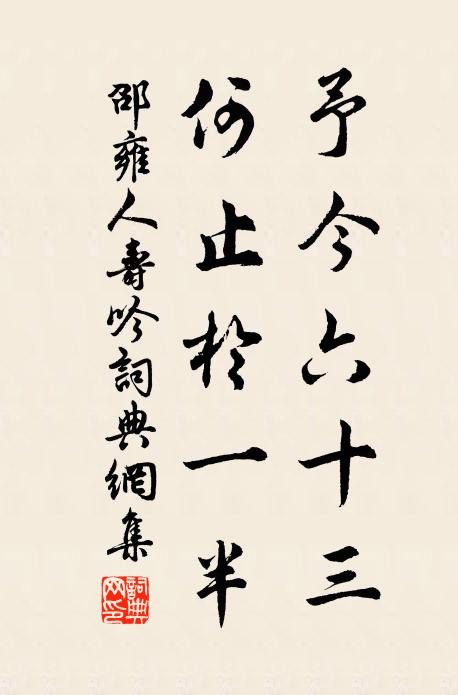 予今六十三
何止於一半
邵雍人壽吟詞典網集
詞典网印